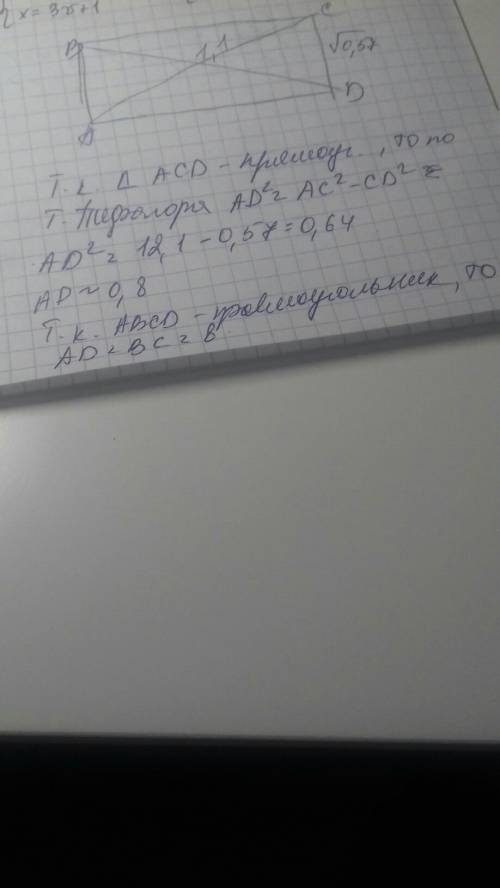 x = 3x+1
B
C
1,1
√0,57
A
D
Т.к. Δ ACD – прямоуг., то по
Т. Пифагора AD² = AC² – CD² =
AD² = 12,1 – 0,57 = 0,64
AD ~ 0,8
Т.к. ABCD – прямоугольник, то
AD = BC = 8